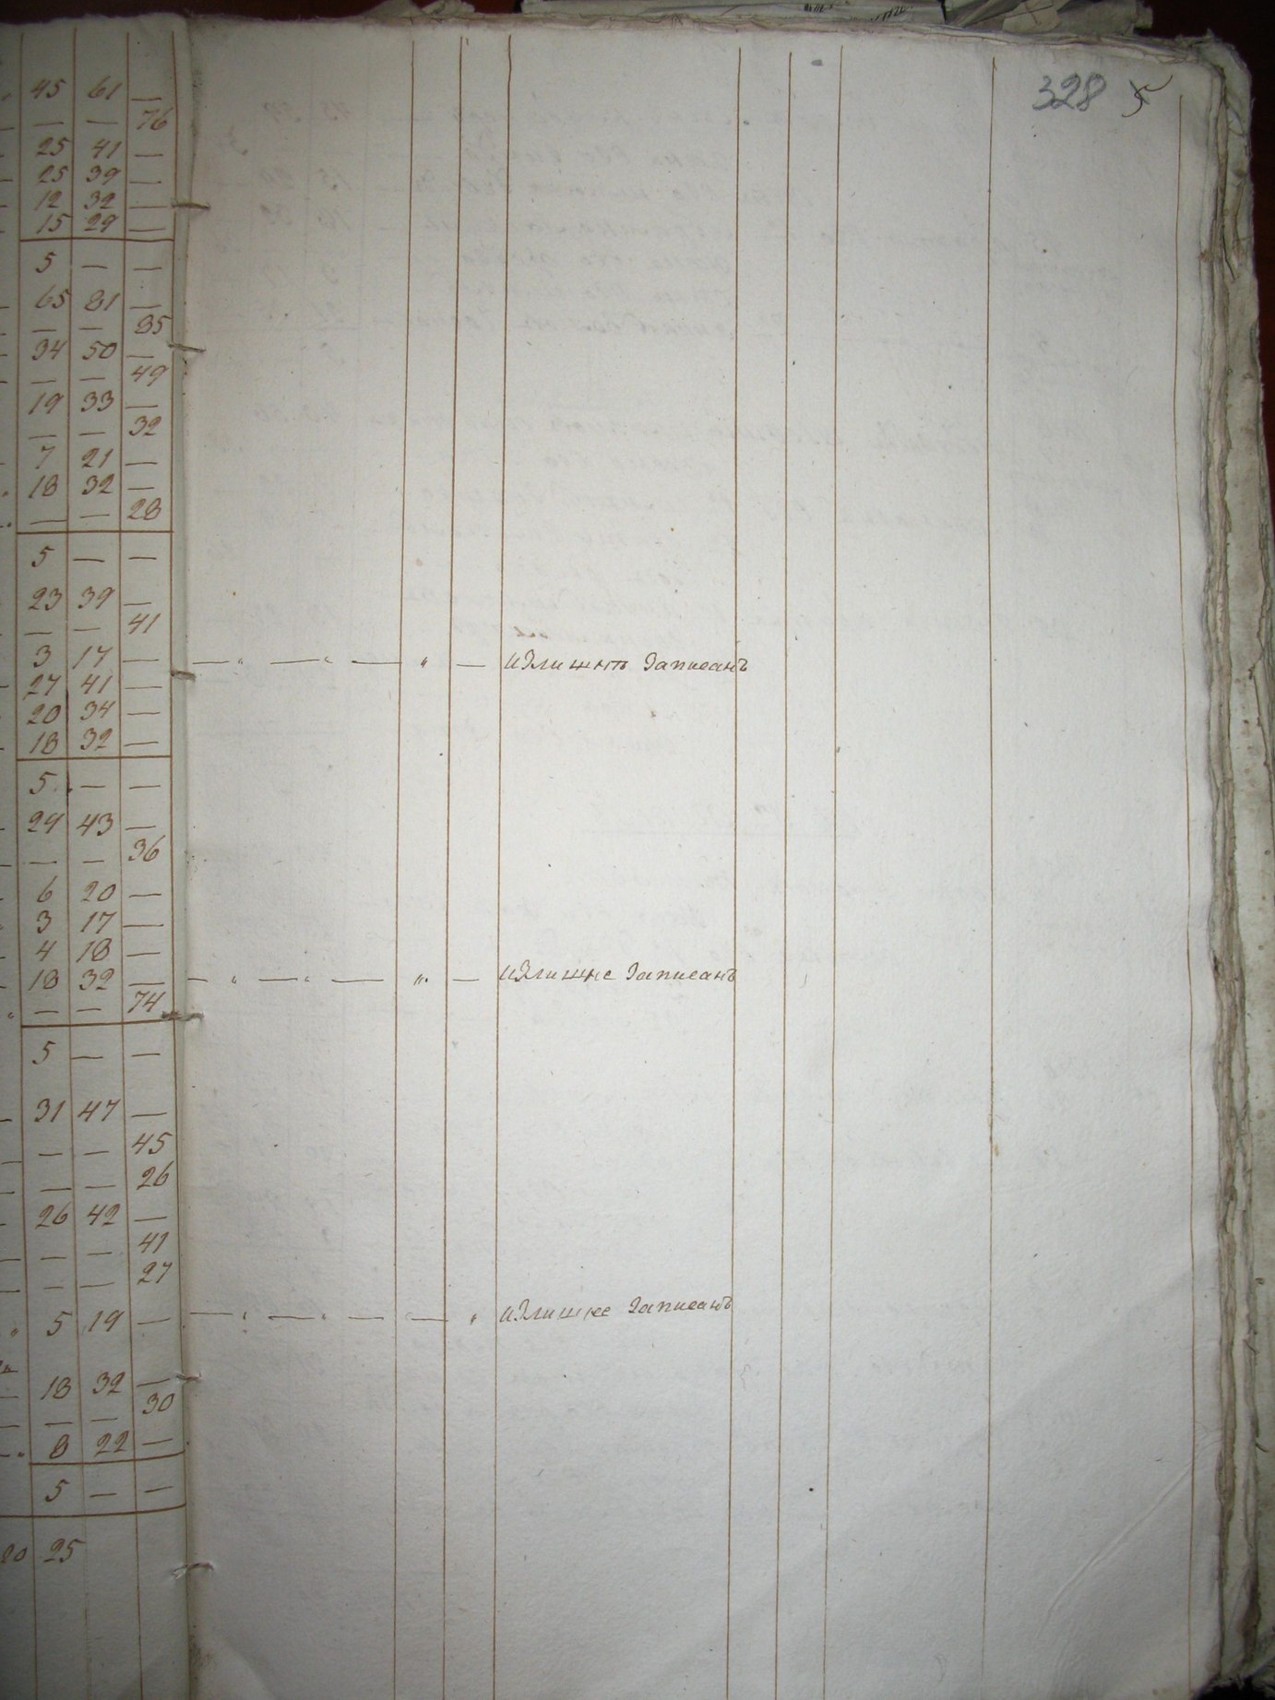 328
45 61 —
— — 76
25 41 —
25 39 —
12 32 —
15 29 —
5 — —
65 81 —
— — 85
34 50 —
— — 49
19 33 —
— — 32
7 21 —
18 32 —
— — 28
5 — —
23 39 —
— — 41
3 17 — излишнѣ записанъ
27 41 —
20 34 —
18 32 —
5 — —
29 43 —
— — 36
6 20 —
3 17 —
4 18 —
18 32 — излишне записанъ
— — 74
5 — —
31 47 —
— — 45
— — 26
26 42 —
— — 41
— — 27
5 19 — излишне записанъ
18 32 —
— — 30
8 22 —
5 — —
20 25